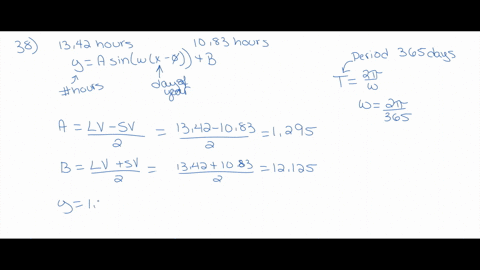 38) 13.42 hours 10.83 hours
y = A sin(ω(x-φ)) + B
#hours
day of year
Period 365 days
T = 2π/ω
ω = 2π/365
A = LV - SV / 2 = 13.42 - 10.83 / 2 = 1.295
B = LV + SV / 2 = 13.42 + 10.83 / 2 = 12.125
y = 1.